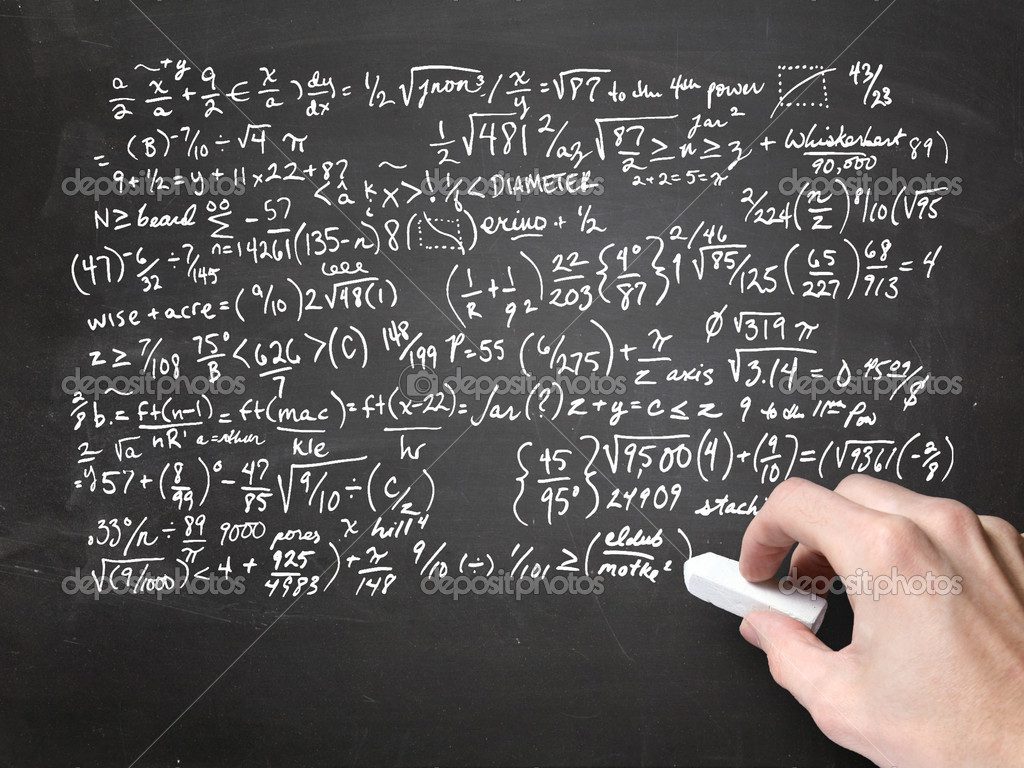 a/2 x/a ~+y + 9/2 + € x/a ) dy/dx = 1/2 √jnon³ / x/y = √87 to the 4th power 43/23
= (B)⁻⁷/10 ÷ √4 π 1/2 √481 2/az √87/2 ≥ n ≥ z jar² + Whiskerhart/90,000 89)
9+1/2 = y + 11 x 22 + 87 < DIAMETER 2+2=5=π
N ≥ beard ∞ ∑ n=1 -57/4261 (135-n) 8 ( ) erino + 1/2 2/224 (π/z)⁸/10 (√95
(47)⁻⁶/32 ÷ 7/145
wise + acre = (9/10) 2√98(1) (1/R + 1/9²) 22/203 {4°/87} 9 2/46 √85/125 (65/227) 68/713 = 4
z ≥ 7/108 75°/B < 626/7 > (C) 148/199 P=55 (6/275) + π/z axis ∅ √319 π / √3.14 = 0 4509/∅
2/8 b. = ft(n-1)/nR' = ft(mac/kle) = ft(x-22)/hr = Jar(?) z+y=c≤z 9 to the 11th Pow
2 √a a=nother
=957 + (8/99)° - 47/85 √9/10 ÷ (C/2) {45/95°} √9,500 (4) + (9/10) = (√9361 (-2/8)
24909 stach
.33°/n ÷ 89/π 9000 pores x hill⁴
√(9/1000) < 4 + 925/4983) + π/148 9/10 (÷) 1/101 ≥ (eldub/motke²)
depositphotos depositphotos depositphotos depositphotos
depositphotos depositphotos depositphotos depositphotos
depositphotos depositphotos depositphotos depositphotos